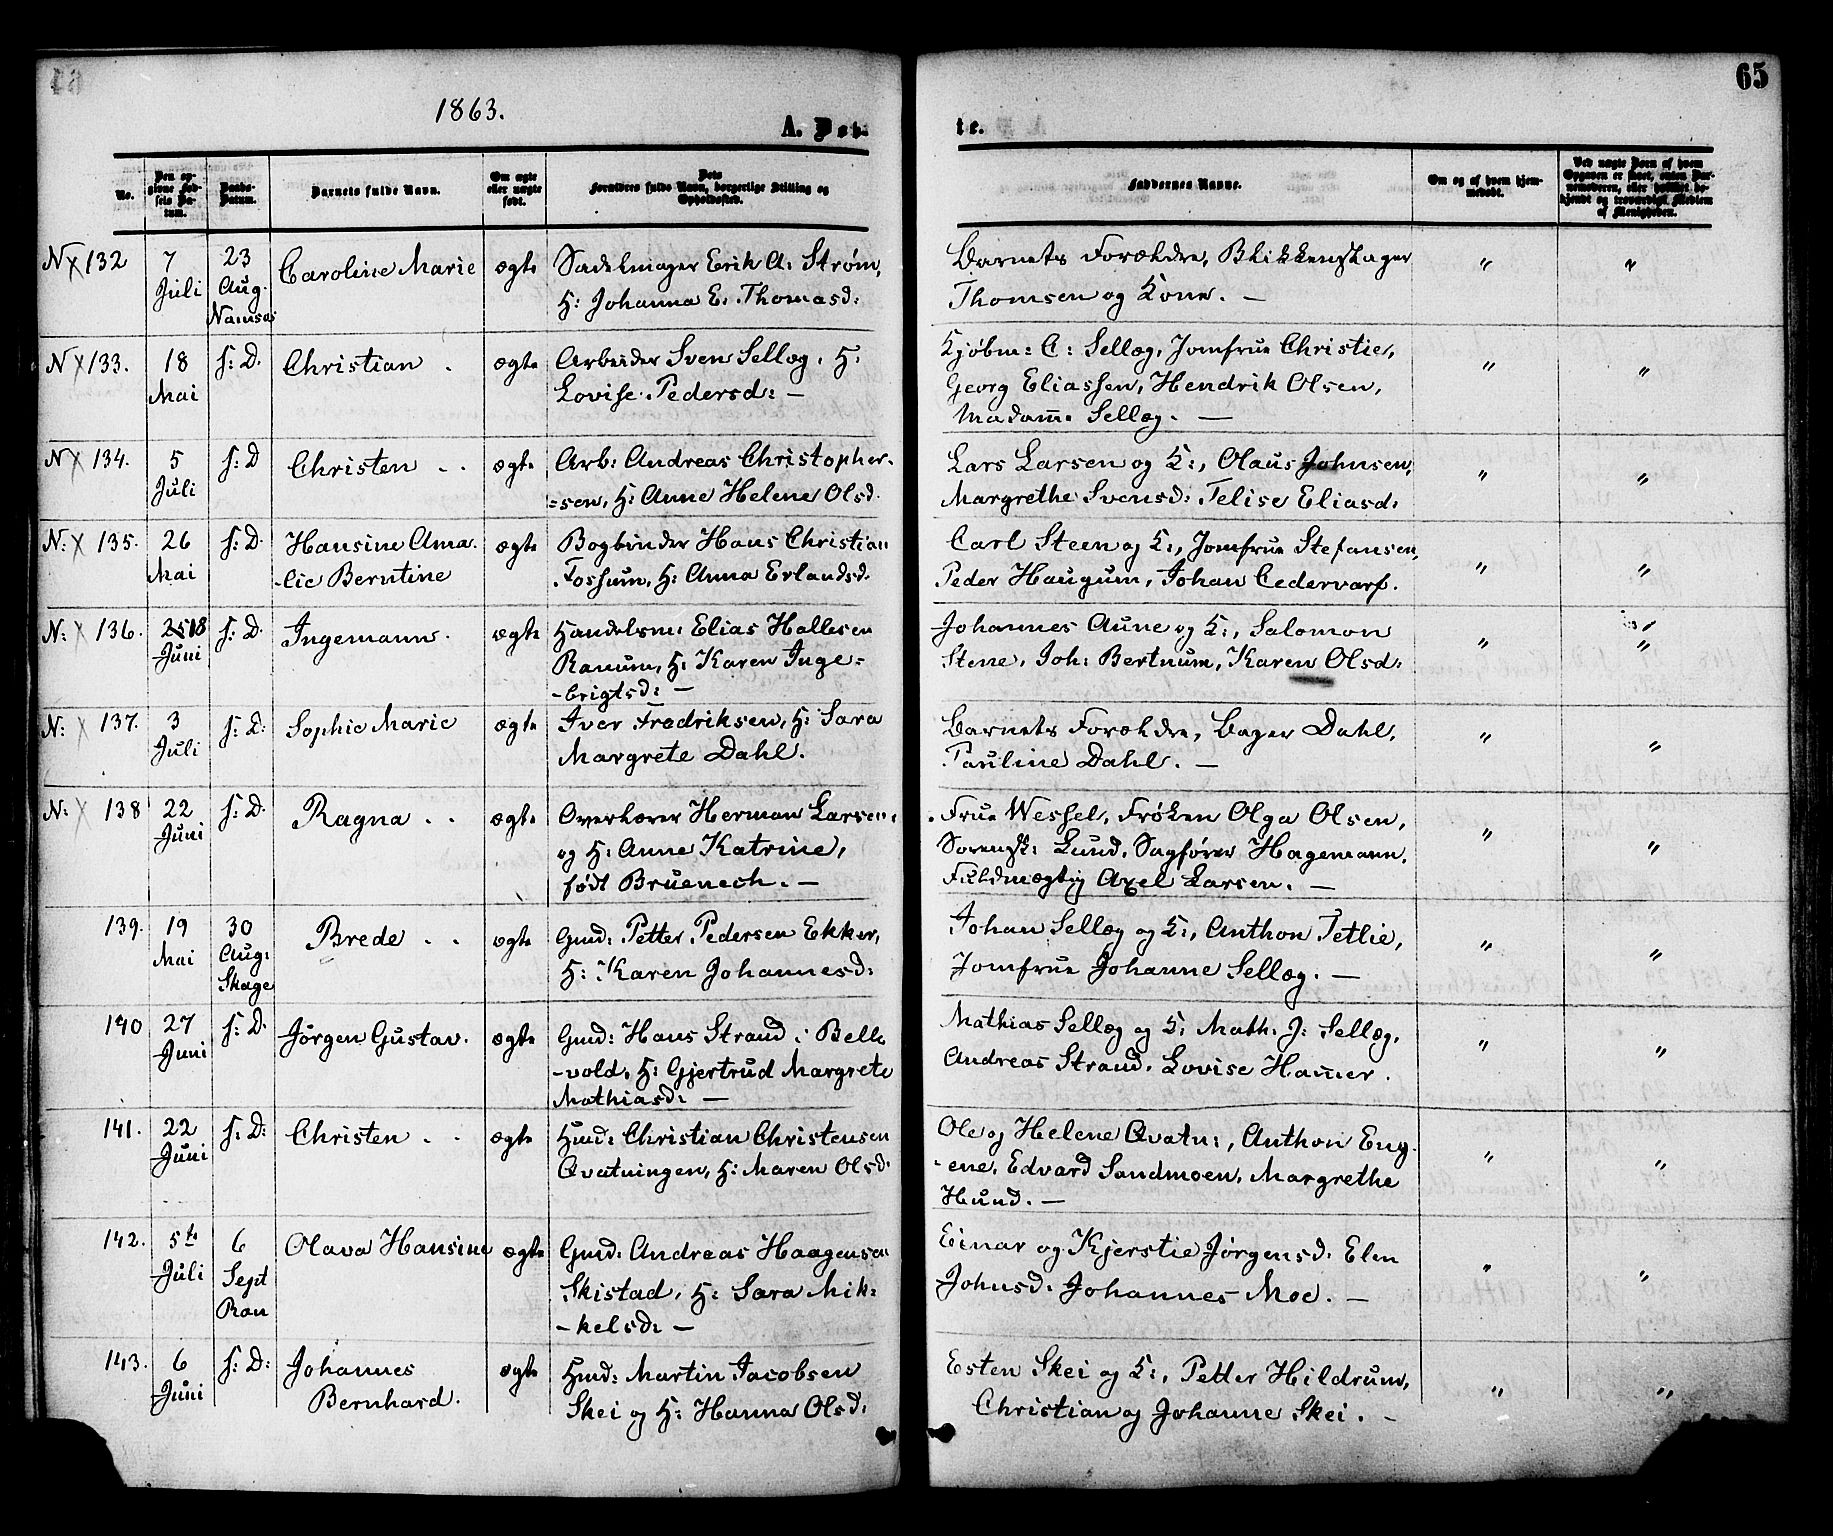 65
1863.
A. Døb-
te.
No.
Den op-
givne Fød-
sels Da-
tum.
Daabs-
Datum.
Barnets fulde Navn.
Om ægte
eller uægte
født.
Dets
Forældres fulde Navn, borgerlige Stilling og
Opholdssted.
Faddernes Navne.
Om og af hvem hjem-
medøbt.
Ved uægte Børn af hvem
Opgaven er skeet, enten Bar-
nemoderen, eller hvilket be-
kjendt og troværdigt Medlem
af Menigheden.
N 132 7 Juli 23 Aug. Namsos Caroline Marie ægte Sadelmager Erik A: Strøm,
H: Johanna E: Thomasd:
Barnets Forældre, Blikkenslager
Thomsen og Kone. — " "
N 133. 18 Mai s: D. Christian . ægte Arbeider Sven Sellæg, H:
Lovise Pedersd: —
Kjøbm: C: Sellæg, Jomfrue Christie,
Georg Eliassen, Hendrik Olsen,
Madam Sellæg. — " "
N 134. 5 Juli s: D Christen . . ægte Arb: Andreas Christopher-
=sen, H: Anne Helene Olsd.
Lars Larsen og K:, Olaus Johnsen,
Margrethe Svensd: Telise Eliasd: " "
N: 135. 26 Mai s: D. Hansine Ama-
-lie Berntine ægte Bogbinder Hans Christian
Fossum, H: Anna Erlandsd.
Carl Steen og K:, Jomfrue Stefansen,
Peder Haugum, Johan Cedervarf. " "
N: 136. 25 18 Juni s: D. Ingemann. ægte Handelsm: Elias Hallesen
Ranum, H: Karen Inge=
-brigtsd: —
Johannes Aune og K:, Salomon
Stene, Joh: Bertnum, Karen Olsd: " "
N: 137. 3 Juli s: D: Sophie Marie ægte Iver Fredriksen, H: Sara
Margrete Dahl.
Barnets Forældre, Bager Dahl,
Pauline Dahl. — " "
N: 138 22 Juni s: D. Ragna . . ægte Overlærer Herman Larsen,
og H: Anne Katrine,
født Bruenech. —
Frue Wessel, Frøken Olga Olsen,
Sorensk: Lund, Sagfører Hagemann,
Fuldmægtig Axel Larsen. — " "
139. 19 Mai 30 Aug: Skage Brede . . ægte Gmd: Petter Pedersen Ekker,
H: Karen Johannesd:
Johan Sellæg og K:, Anthon Tetlie,
Jomfrue Johanne Sellæg. — " "
140 27 Juni s: D. Jørgen Gustav. ægte Gmd: Hans Strand i Belle
-vold, H: Gjertrud Margrete
Mathiasd: —
Mathias Sellæg og K: Math: J: Sellæg,
Andreas Strand, Lovise Hammer. " "
141. 22 Juni s: D: Christen . . ægte Hmd: Christian Christensen
Qvatningen, H: Maren Olsd:
Ole og Helene Qvatn:, Anthon Eng-
-ene, Edvard Sandmoen, Margrethe
Hund. — " "
142. 5te Juli 6 Sept Ran Olava Hansine ægte Gmd: Andreas Haagensen
Skistad, H: Sara Mik=
-kelsd: —
Einar og Kjerstie Jørgensd. Elen
Johnsd: Johannes Moe. — " "
143. 6 Juni s: D: Johannes
Bernhard. ægte Hmd: Martin Jacobsen
Skei og H: Hanna Olsd:
Esten Skei og K:, Petter Hildrum,
Christian og Johanne Skei. — " "